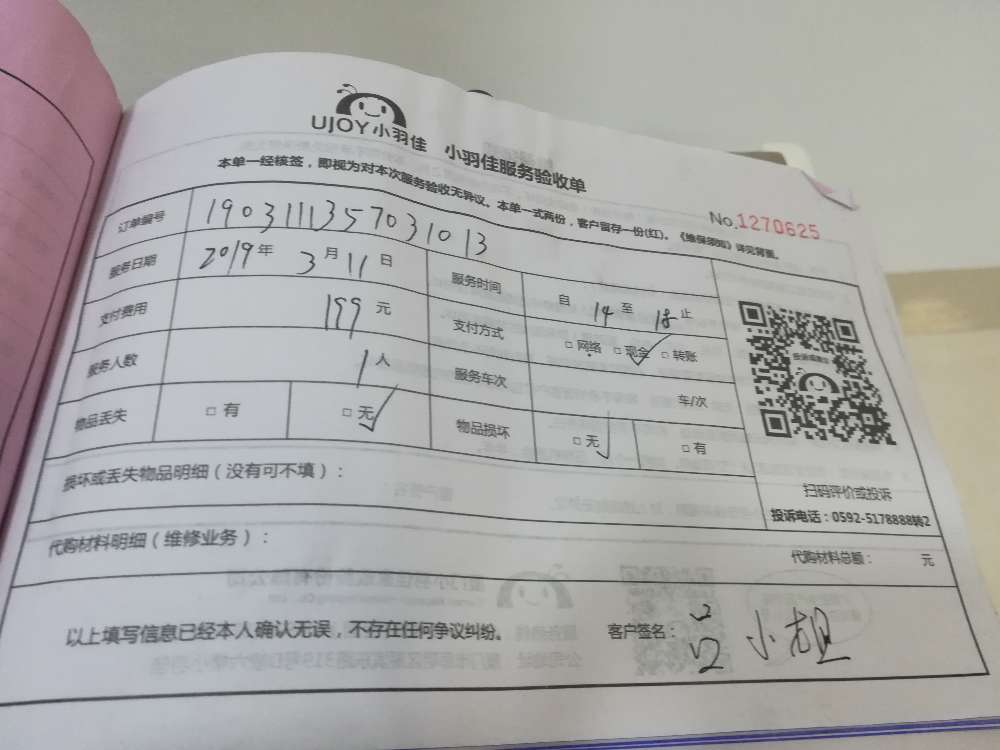 UJOY小羽佳 小羽佳服务验收单
本单一经核签，即视为对本次服务验收无异议。本单一式两份，客户留存一份(红)。《维保须知》详见背面。
No.1270625
订单编号 190311135703 1013
服务日期 2019年 3月 11日 服务时间 自 14 至 18 止
支付费用 199 元 支付方式 □网络 □现金 □转账
服务人数 1人 服务车次 车/次
物品丢失 □有 □无 物品损坏 □无 □有
扫码评价或投诉
投诉电话：0592-5178888转2
损坏或丢失物品明细（没有可不填）：
代购材料明细（维修业务）： 代购材料总额： 元
以上填写信息已经本人确认无误，不存在任何争议纠纷。 客户签名： 小姐